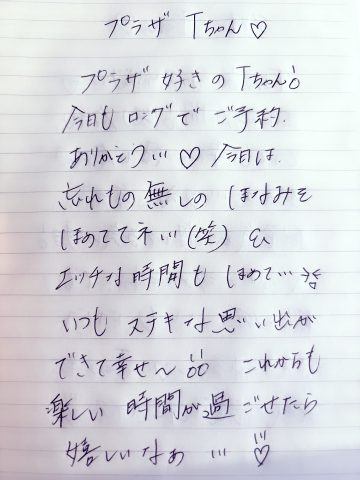 プラザ Tちゃん♡
プラザ 好きの Tちゃん
今日も ロングで ご予約.
ありがとう… ♡ 今日は.
忘れもの 無しの ほなみを
ほめててネ… (笑) &
エッチな時間も ほめて…
いつも ステキな思い出が
できて幸せ〜 これからも
楽しい 時間が過ごせたら
嬉しいなぁ … ♡